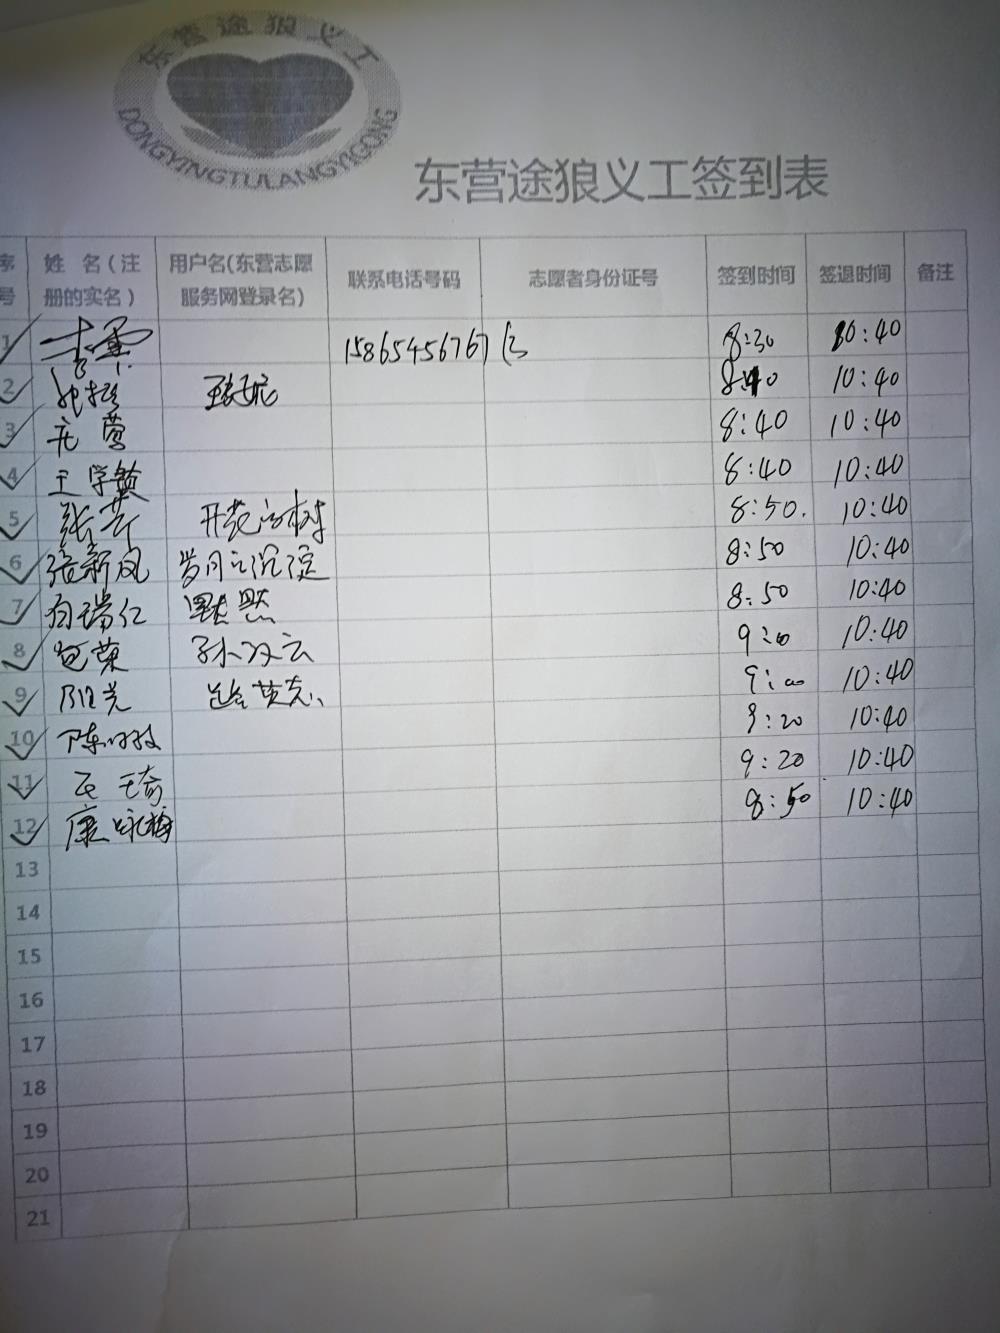 东营途狼义工
DONGYINGTULANGYIGONG
东营途狼义工签到表
序号 姓 名（注册的实名） 用户名(东营志愿服务网登录名) 联系电话号码 志愿者身份证号 签到时间 签退时间 备注
1 15865456767 8:30 10:40
2 8:40 10:40
3 8:40 10:40
4 王学敏 8:40 10:40
5 张芹 开花的树 8:50. 10:40
6 张新凤 岁月之沉淀 8:50 10:40
7 向瑞仁 默然 8:50 10:40
8 孙汉云 9:00 10:40
9 阳光 9:00 10:40
10 9:20 10:40
11 9:20 10:40
12 康咏梅 8:50 10:40
13
14
15
16
17
18
19
20
21